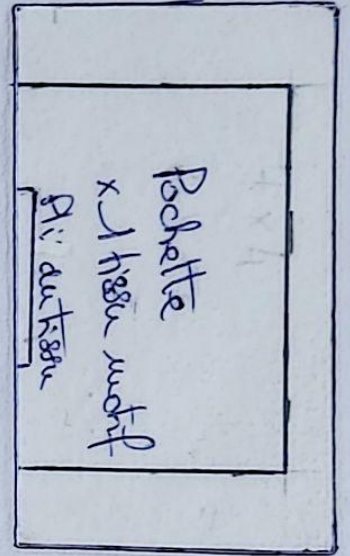 Pochette
x 1 tissu motif
Pli du tissu